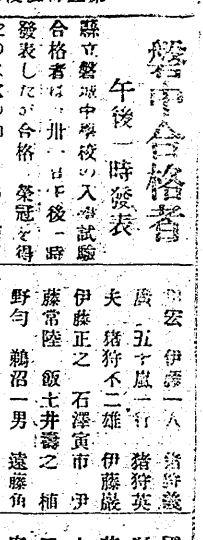 磐中合格者
午後一時發表
縣立磐城中學校の入學試驗
合格者は卅一日午後一時
發表したが合格榮冠を得
宏 伊藤一人 猪狩義
廣 五十嵐一行 猪狩英
夫 猪狩不二雄 伊藤巖
伊藤正之 石澤寅市 伊
藤常陸 飯土井壽之 植
野勻 鵜沼一男 遠藤角